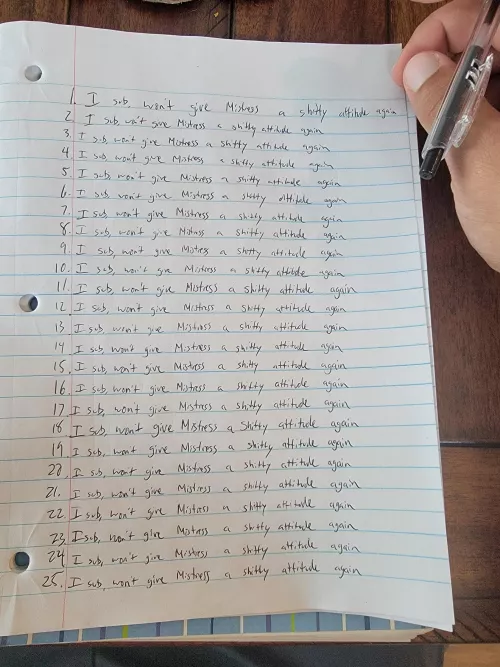 1. I sub, won't give Mistress a shitty attitude again
2. I sub won't give Mistress a shitty attitude again
3. I sub, won't give Mistress a shitty attitude again
4. I sub, won't give Mistress a shitty attitude again
5. I sub, won't give Mistress a shitty attitude again
6. I sub, won't give Mistress a shitty attitude again
7. I sub, won't give Mistress a shitty attitude again
8. I sub, won't give Mistress a shitty attitude again
9. I sub, won't give Mistress a shitty attitude again
10. I sub, won't give Mistress a shitty attitude again
11. I sub, won't give Mistress a shitty attitude again
12. I sub, won't give Mistress a shitty attitude again
13. I sub, won't give Mistress a shitty attitude again
14. I sub, won't give Mistress a shitty attitude again
15. I sub, won't give Mistress a shitty attitude again
16. I sub, won't give Mistress a shitty attitude again
17. I sub, won't give Mistress a shitty attitude again
18. I sub, won't give Mistress a shitty attitude again
19. I sub, won't give Mistress a shitty attitude again
20. I sub, won't give Mistress a shitty attitude again
21. I sub, won't give Mistress a shitty attitude again
22. I sub, won't give Mistress a shitty attitude again
23. I sub, won't give Mistress a shitty attitude again
24. I sub, won't give Mistress a shitty attitude again
25. I sub, won't give Mistress a shitty attitude again